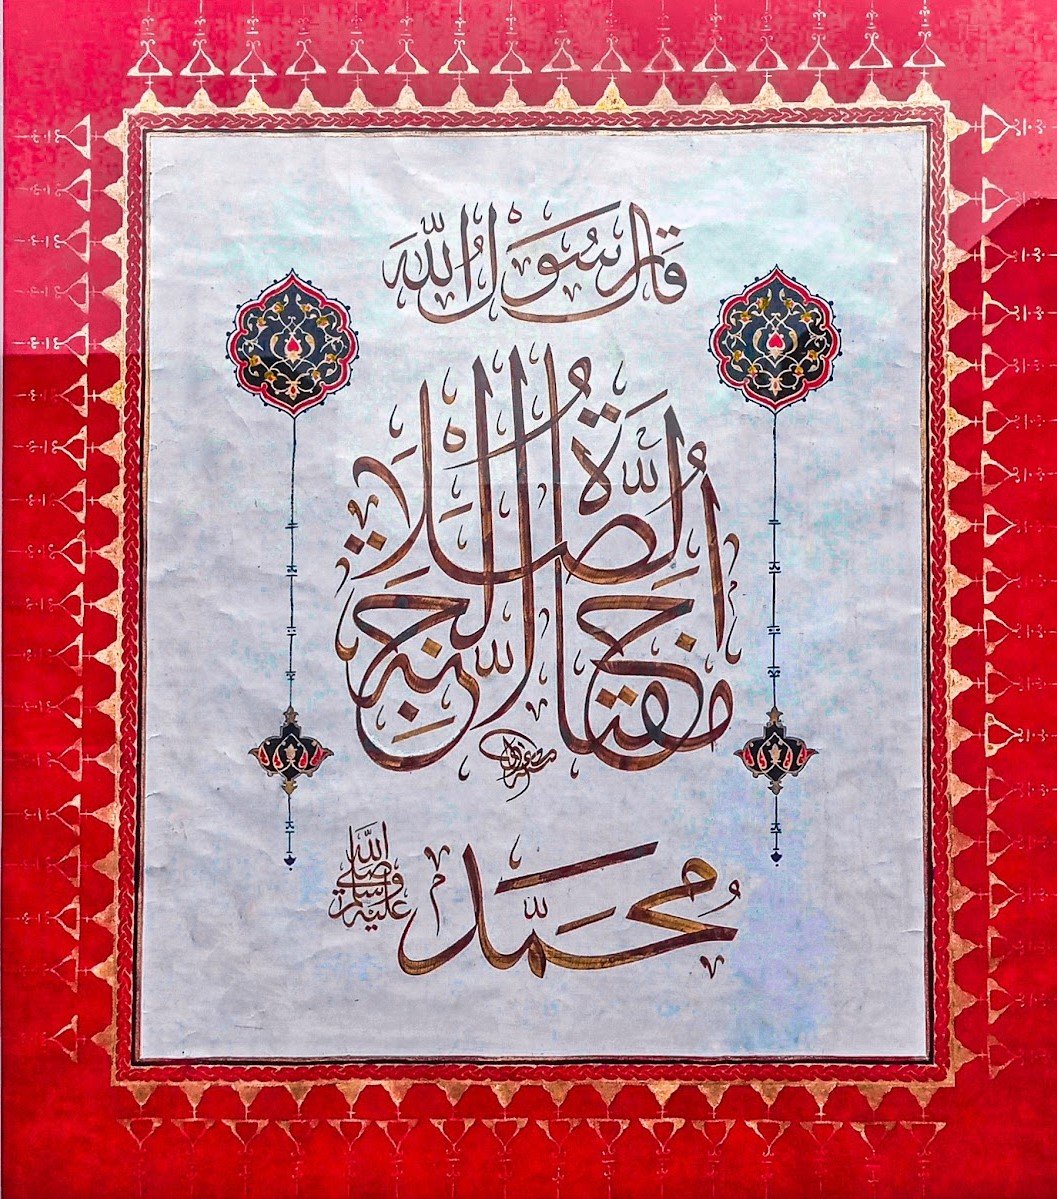 قال رسول الله
مفتاح الجنة الصلاة
محمد
صلى الله عليه وسلم